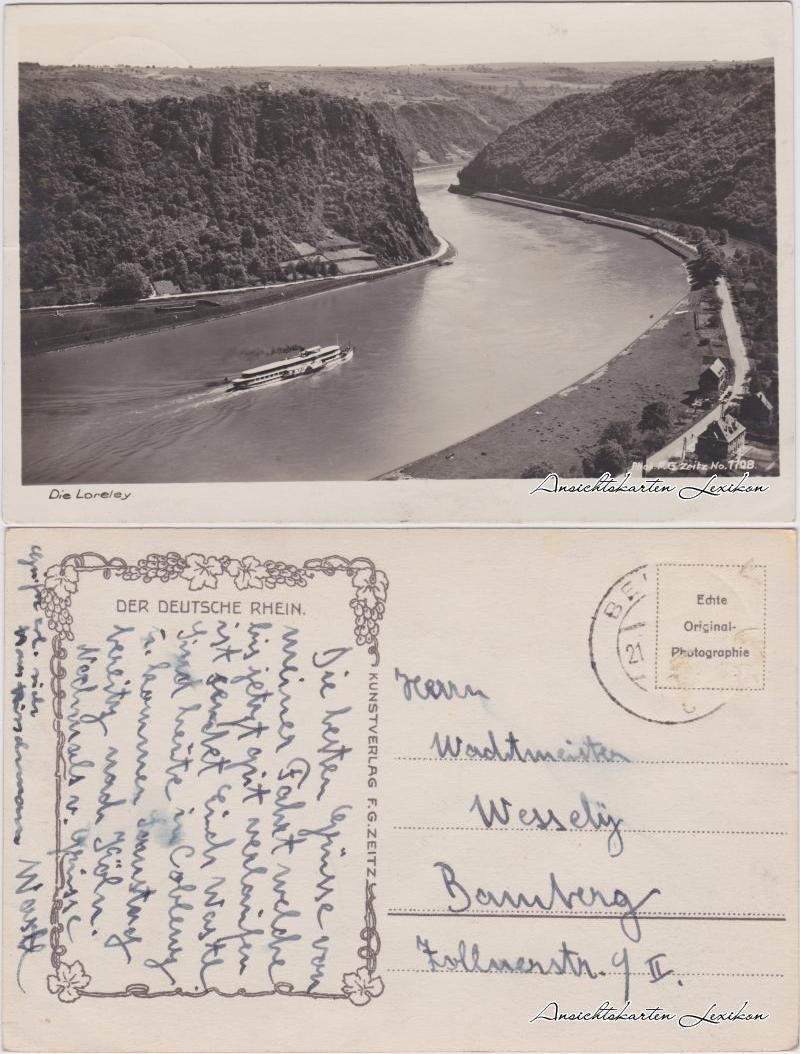 Die Loreley
Phot. F.G. Zeitz No. 1708.
Ansichtskarten Lexikon
DER DEUTSCHE RHEIN.
Die besten Grüsse von
meiner Fahrt welche
bis jetzt gut verlaufen
ist sendet Euch Wastl
Sind heute in Coblenz
u. kommen Samstag
bereits nach Köln.
Nochmals v. Grüsse
Wastl
KUNSTVERLAG F.G. ZEITZ
BE
21
Echte
Original-
Photographie
Herrn
Wachtmeister
Wessely
Bamberg
Zollnerstr. 9 II.
Ansichtskarten Lexikon